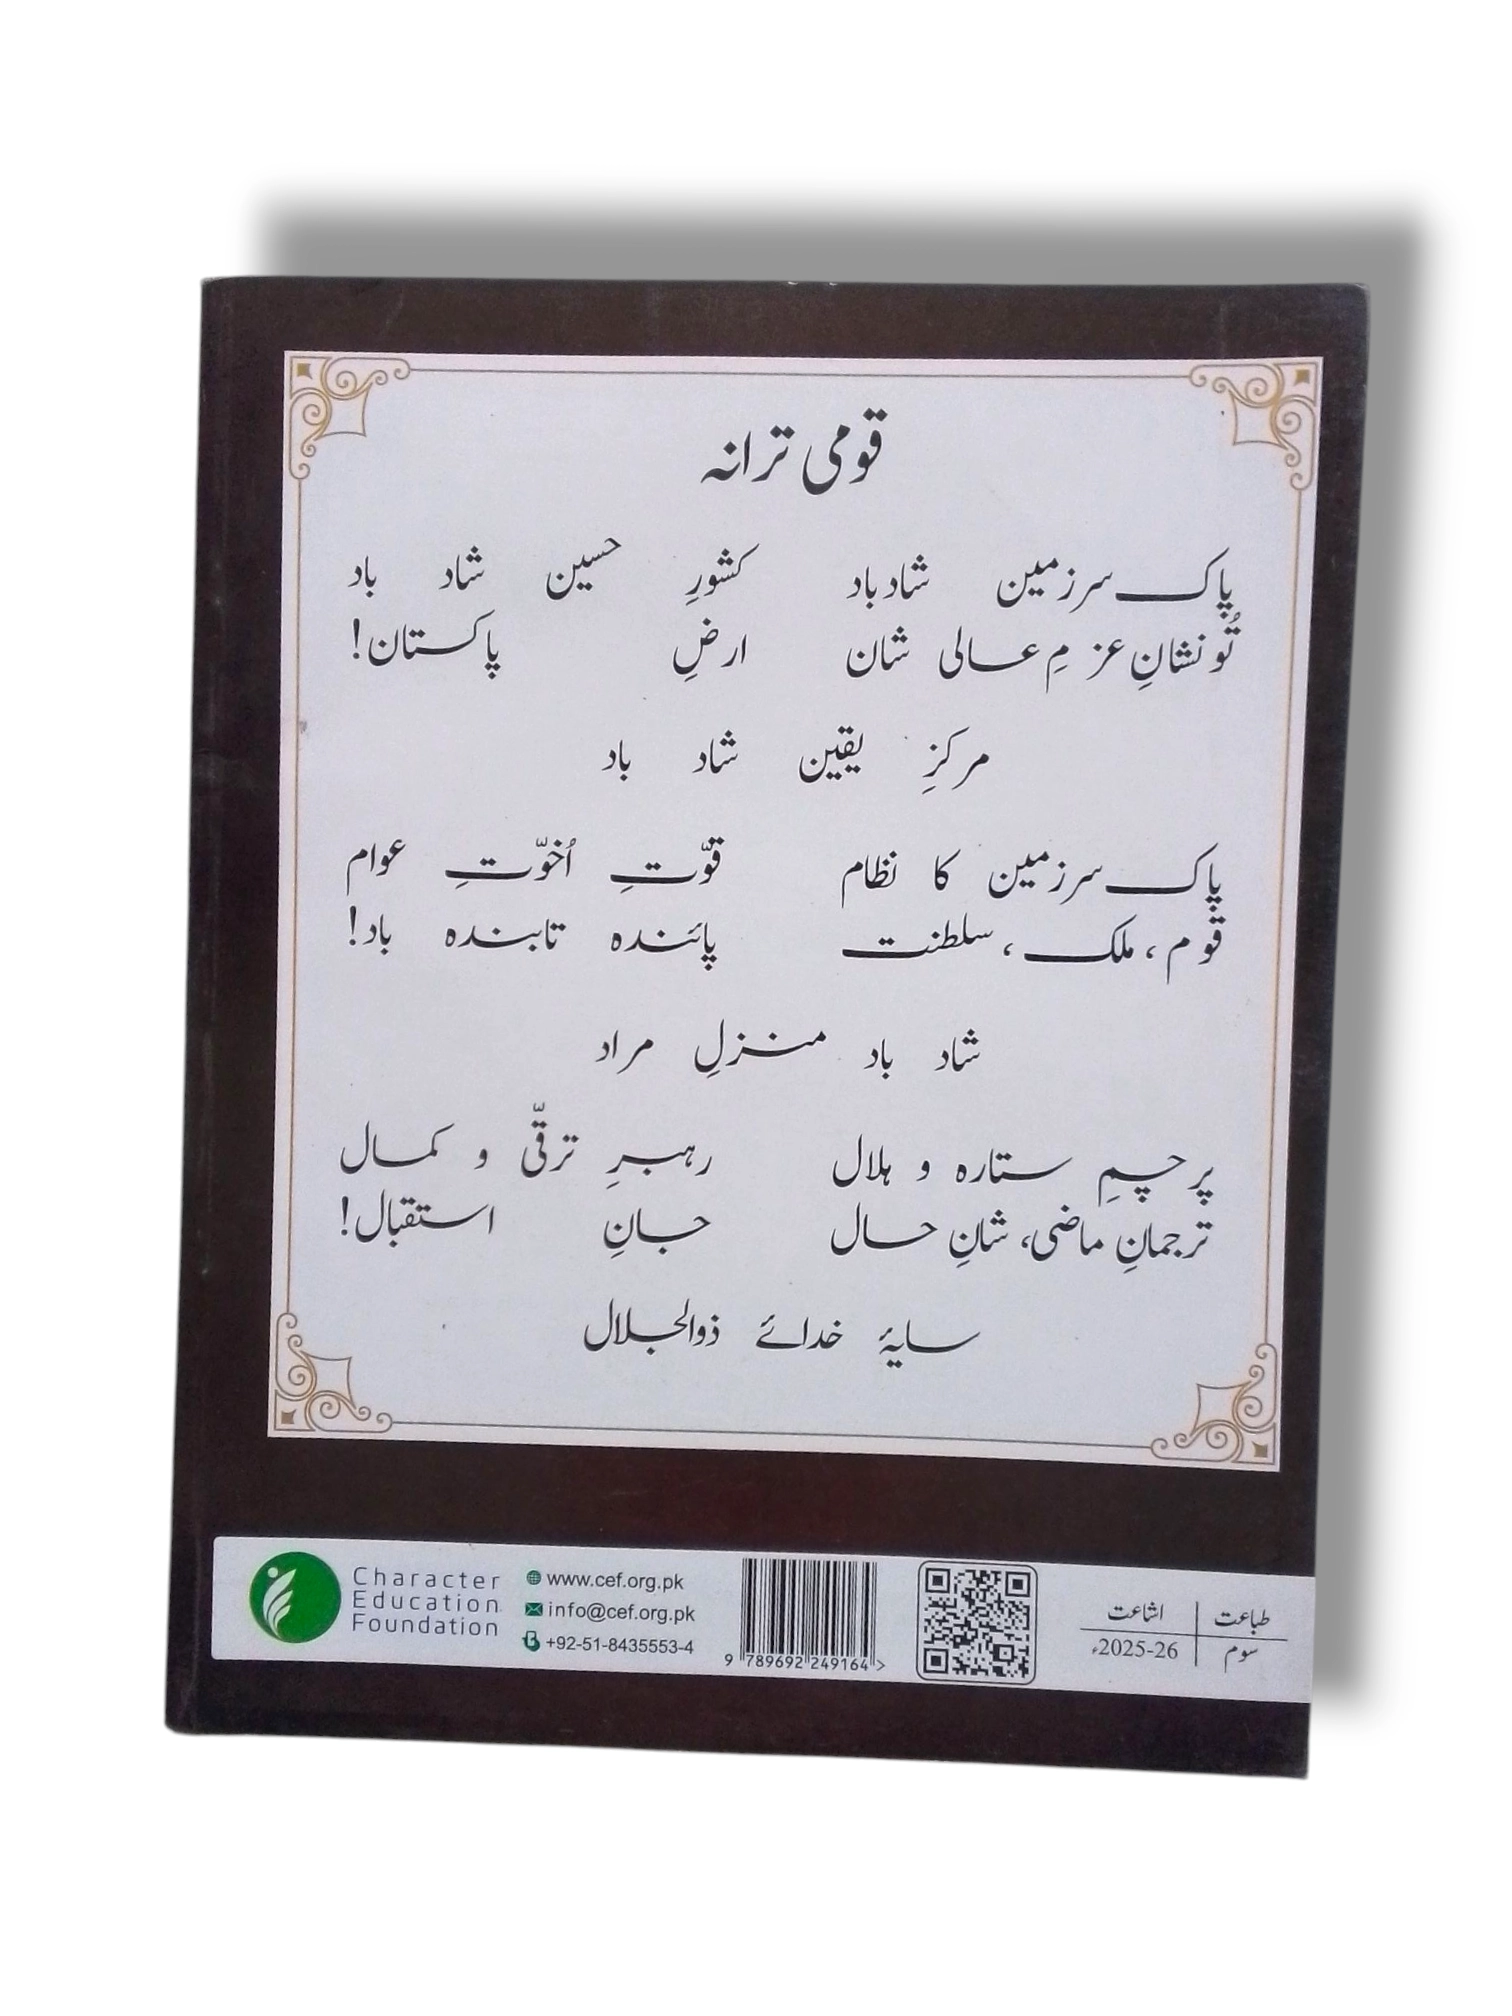 قومی ترانہ
پاک سرزمین شاد باد کشورِ حسین شاد باد
تُو نشانِ عزمِ عالی شان ارضِ پاکستان!
مرکزِ یقین شاد باد
پاک سرزمین کا نظام قوّتِ اُخوّتِ عوام
قوم، ملک، سلطنت پائندہ تابندہ باد!
شاد باد منزلِ مراد
پرچمِ ستارہ و ہلال رہبرِ ترقّی و کمال
ترجمانِ ماضی، شانِ حال جانِ استقبال!
سایۂ خدائے ذوالجلال
Character
Education
Foundation
www.cef.org.pk
info@cef.org.pk
+92-51-8435553-4
9 789692 249164 >
طباعت اشاعت
سوم 2025-26ء